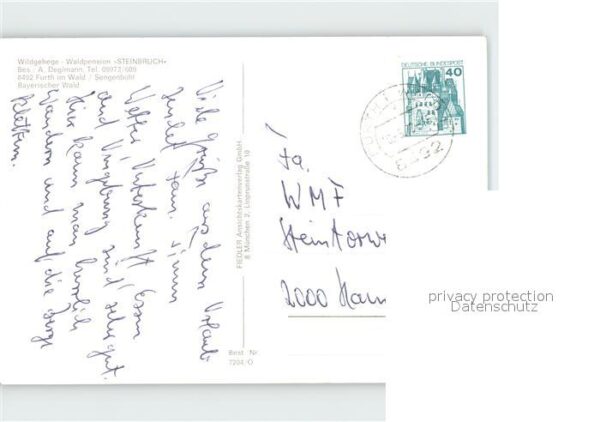 Wildgehege - Waldpension «STEINBRUCH»
Bes.: A. Deglmann, Tel. 09973/609
8492 Furth im Wald / Sengenbühl
Bayerischer Wald
Viele Grüße aus dem Urlaub
sendet Fam.
Wetter Unterkunft Essen
und Umgebung sind sehr gut.
Hier kann man herrlich
wandern und auf die Berge
klettern.
FIEDLER Ansichtskartenverlag GmbH
8 München 2, Linprunstraße 10
Best. Nr.
7204/O
DEUTSCHE BUNDESPOST
40
Fa.
WMF
Steintorw
2000 Ham
privacy protection
Datenschutz